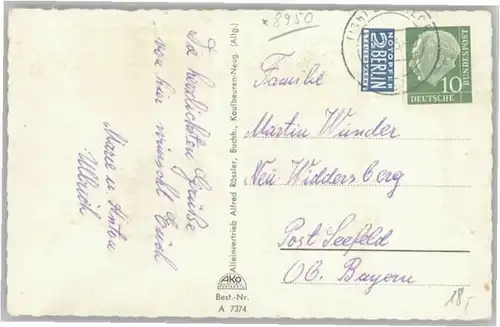 * 8950
Die herzlichsten Grüße
von hier wünscht Euch
Marie u Anton
Ullrich
Alleinvertrieb Alfred Rössler, Buchh., Kaufbeuren-Neug. (Allg.)
AKO
Best.-Nr.
A 7374
NOTOPFER
2 BERLIN
STEUERMARKE
DEUTSCHE
BUNDESPOST
10
Familie
Martin Wunder
Neu Widdersberg
Post Seefeld
OB. Bayern
18,-